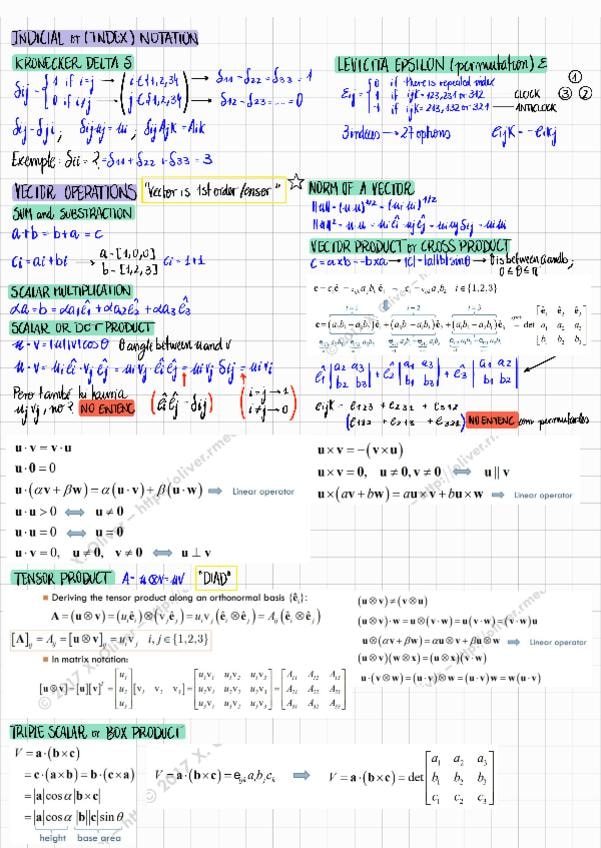 INDICIAL or (INDEX) NOTATION
KRONECKER DELTA δ
δij = { 1 if i=j → ( i ∈ {1,2,3} → δ11 = δ22 = δ33 = 1
0 if i≠j → j ∈ {1,2,3} ) → δ12 = δ23 = ... = 0
δij = δji ; δij uj = ui ; δij Ajk = Aik
Exemple: δii = ? = δ11 + δ22 + δ33 = 3
LEVICITA EPSILON (permutation) ε
0 if there is repeated index
1 if ijk = 123, 231 or 312 CLOCK
-1 if ijk = 213, 132 or 321 ANTICLOCK
① ③ ②
3 indices → 27 options
VECTOR OPERATIONS "Vector is 1st order tensor" ☆
SUM and SUBSTRACTION
a+b = b+a = c
ci = ai + bi → a = [1,0,0] b = [1,2,3]
SCALAR MULTIPLICATION
αa = b = αa1ê1 + αa2ê2 + αa3ê3
SCALAR OR DOT PRODUCT
u · v = |u||v|cosθ θ angle between u and v
u · v = uiêi · vjêj = uivj êiêj = uivj δij = uivi
Pero també hi hauria
ujvj, no? NO ENTENC ( êiêj = δij ) ( i=j → 1
i≠j → 0 )
NORM OF A VECTOR
VECTOR PRODUCT or CROSS PRODUCT
c = a×b = -b×a → |c| = |a||b|sinθ → θ is between a and b;
0 ≤ θ ≤ π
i ∈ {1,2,3}
i=1 i=2 i=3
ê1 | a2 a3 b2 b3 | + ê2 | a3 a1 b3 b1 | + ê3 | a1 a2 b1 b2 |
eijk = e123 + e231 + e312
(e132 + e213 + e321) NO ENTENC com permutades
u · v = v · u
u · 0 = 0
u · (αv + βw) = α(u · v) + β(u · w) ⇒ Linear operator
u · u > 0 ⇔ u ≠ 0
u · u = 0 ⇔ u = 0
u · v = 0, u ≠ 0, v ≠ 0 ⇔ u ⊥ v
u × v = −(v × u)
u × v = 0, u ≠ 0, v ≠ 0 ⇔ u || v
u × (av + bw) = au × v + bu × w ⇒ Linear operator
TENSOR PRODUCT A = u⊗v = uv "DIAD"
▪ Deriving the tensor product along an orthonormal basis {êi}:
A = (u⊗v) = (uiêi)⊗(vjêj) = uivj(êi⊗êj) = Aij(êi⊗êj)
[A]ij = Aij = [u⊗v]ij = uivj i, j ∈ {1,2,3}
▪ In matrix notation:
[u⊗v] = [u][v]^T = [u1 u2 u3] [v1 v2 v3] = [u1v1 u1v2 u1v3 u2v1 u2v2 u2v3 u3v1 u3v2 u3v3] = [A11 A12 A13 A21 A22 A23 A31 A32 A33]
(u⊗v) ≠ (v⊗u)
(u⊗v) · w = u⊗(v · w) = u(v · w) = (v · w)u
u⊗(αv + βw) = αu⊗v + βu⊗w ⇒ Linear operator
(u⊗v)(w⊗x) = (u⊗x)(v · w)
u · (v⊗w) = (u · v)⊗w = (u · v)w = w(u · v)
TRIPLE SCALAR or BOX PRODUCT
V = a · (b × c)
= c · (a × b) = b · (c × a)
= |a| cos α |b × c|
= |a| cos α |b||c| sin θ
height base area
V = a · (b × c) = eijk ai bj ck ⇒ V = a · (b × c) = det [a1 a2 a3 b1 b2 b3 c1 c2 c3]